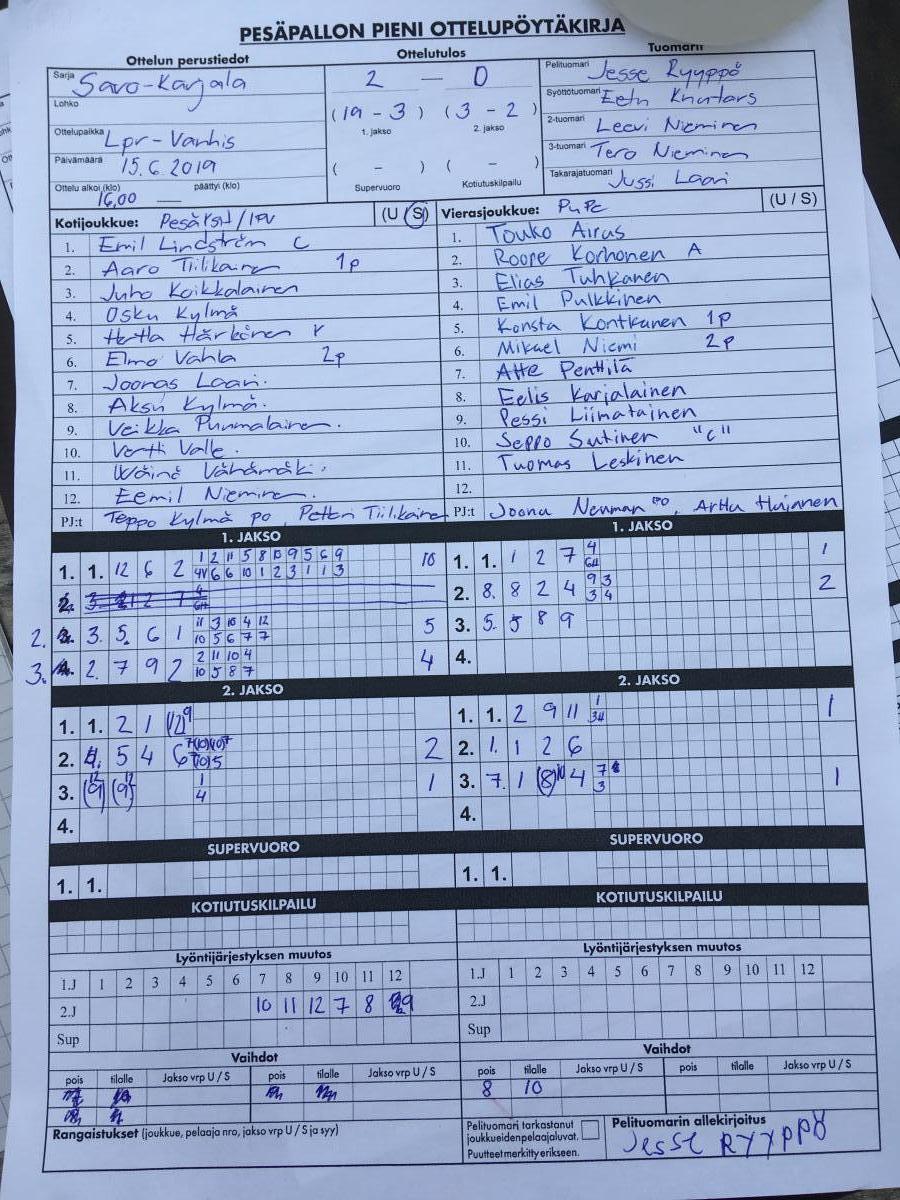 PESÄPALLON PIENI OTTELUPÖYTÄKIRJA
Ottelun perustiedot
Ottelutulos
Tuomarit
Sarja Savo-Karjala
Lohko
Ottelupaikka Lpr-Vanhis
Päivämäärä 15.6.2019
Ottelu alkoi (klo) päättyi (klo)
16,00 —
2 — 0
(19 - 3) (3 - 2)
1. jakso 2. jakso
( - ) ( - )
Supervuoro Kotiutuskilpailu
Pelituomari Jesse Ryyppö
Syöttötuomari Eetu
2-tuomari Leevi Nieminen
3-tuomari Tero Nieminen
Takarajatuomari Jussi Laari
Kotijoukkue: (U / S)
1. Emil Lindström C
2. Aaro Tiilikainen 1p
3. Juho Koikkalainen
4. Osku Kylmä
5. Härkönen
6. Elmo Vahla 2p
7. Joonas Laari.
8. Aksu Kylmä.
9. Veikka Punmalainen.
10. Vertti Valle.
11. Väinö Vähämäki.
12. Eemil Nieminen.
PJ:t Teppo Kylmä PO, Petteri Tiilikainen
Vierasjoukkue: PuPe (U / S)
1. Touko Airus
2. Roope Korhonen A
3. Elias Tuhkanen
4. Emil Pulkkinen
5. Konsta Kontkanen 1p
6. Mikael Niemi 2p
7. Atte Penttilä
8. Eelis Karjalainen
9. Pessi Liimatainen
10. Seppo Sutinen "C"
11. Tuomas Leskinen
12.
PJ:t Joona Nenman PO, Arttu Hujanen
1. JAKSO
1. 1. 12 6 2 1 2 11 5 8 10 9 5 6 9 10
4V 6 6 10 1 2 3 1 1 3
2. 3. 5. 6 1 11 3 10 4 12 5
10 5 6 7 7
3. 2. 7 9 2 2 11 10 4 4
10 5 8 7
1. JAKSO
1. 1. 1 2 7 4 1
2. 8. 8 2 4 9 3 2
3 4
3. 5. 5 8 9
4.
2. JAKSO
1. 1. 2 1 (12)9
2. 4. 5 4 6 2
3. (9) (9) 1 1
4
4.
2. JAKSO
1. 1. 2 9 11 1 1
34
2. 1. 1 2 6
3. 7. 1 (8)10 4 7 1
3
4.
SUPERVUORO
1. 1.
SUPERVUORO
1. 1.
KOTIUTUSKILPAILU
KOTIUTUSKILPAILU
Lyöntijärjestyksen muutos
1.J 1 2 3 4 5 6 7 8 9 10 11 12
2.J 10 11 12 7 8 9
Sup
Lyöntijärjestyksen muutos
1.J 1 2 3 4 5 6 7 8 9 10 11 12
2.J
Sup
Vaihdot
pois tilalle Jakso vrp U / S pois tilalle Jakso vrp U / S
Vaihdot
pois tilalle Jakso vrp U / S pois tilalle Jakso vrp U / S
8 10
Rangaistukset (joukkue, pelaaja nro, jakso vrp U / S ja syy)
Pelituomari tarkastanut
joukkueidenpelaajaluvat.
Puutteet merkitty erikseen.
Pelituomarin allekirjoitus
Jesse RYYPPÖ